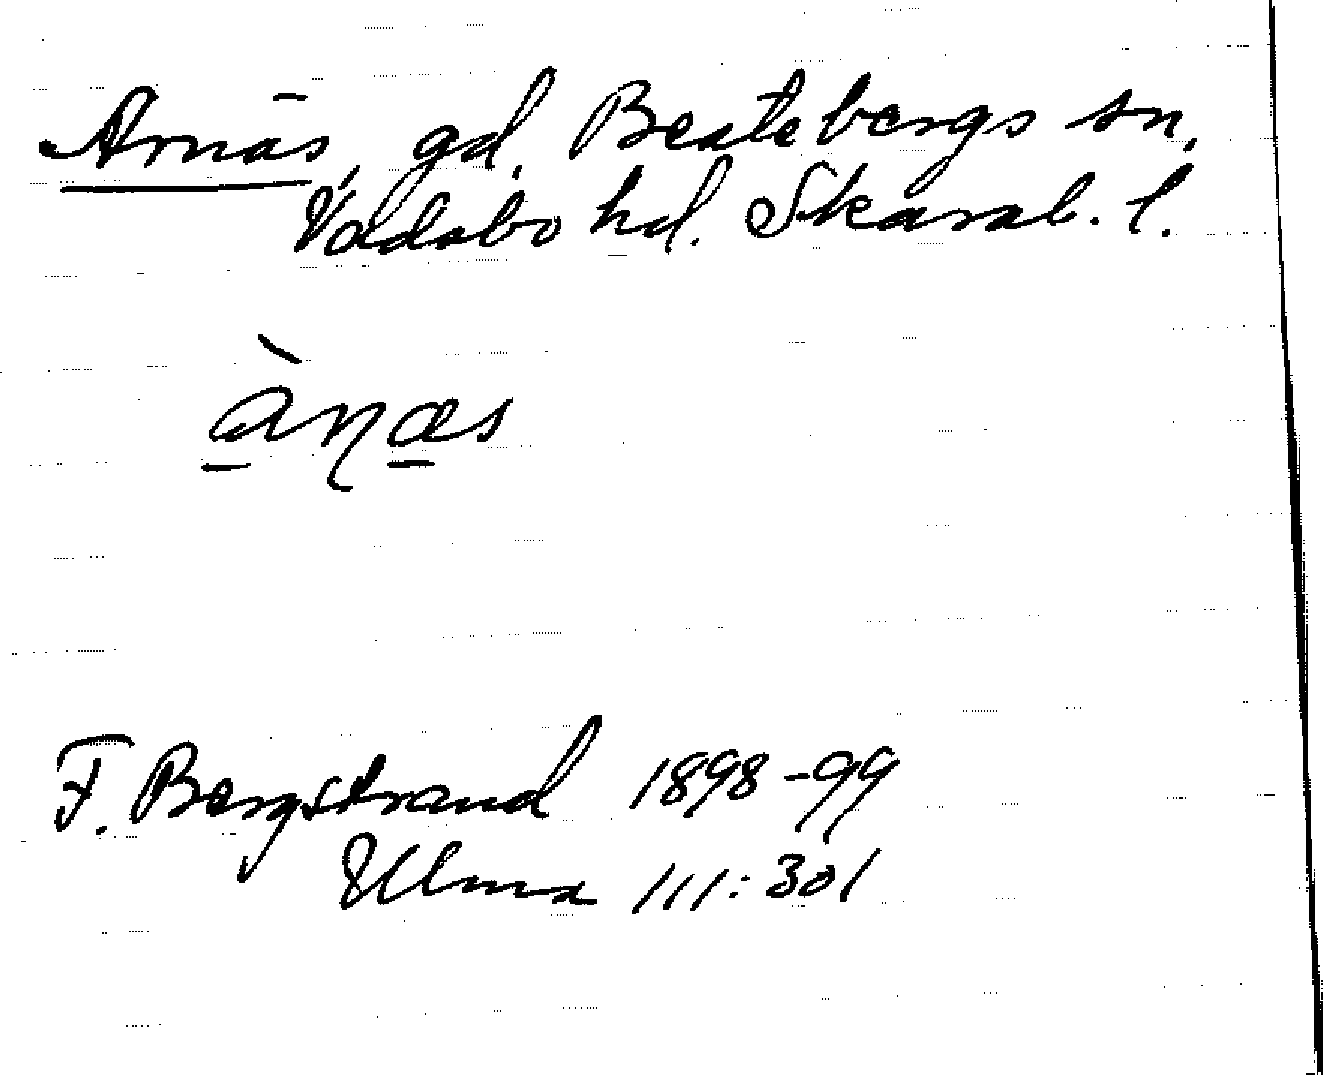 Arnäs, gd, Beatebergs sn,
Vadsbo hd. Skarab. l.
ànæs
F. Bergstrand 1898-99
Ulma 111:301